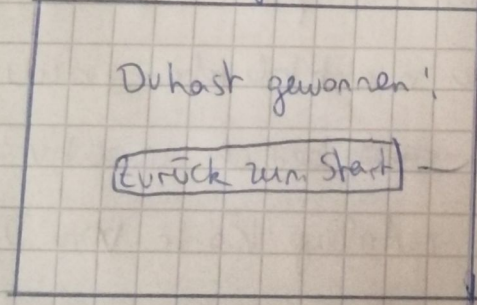 Du hast gewonnen!
Zurück zum Start